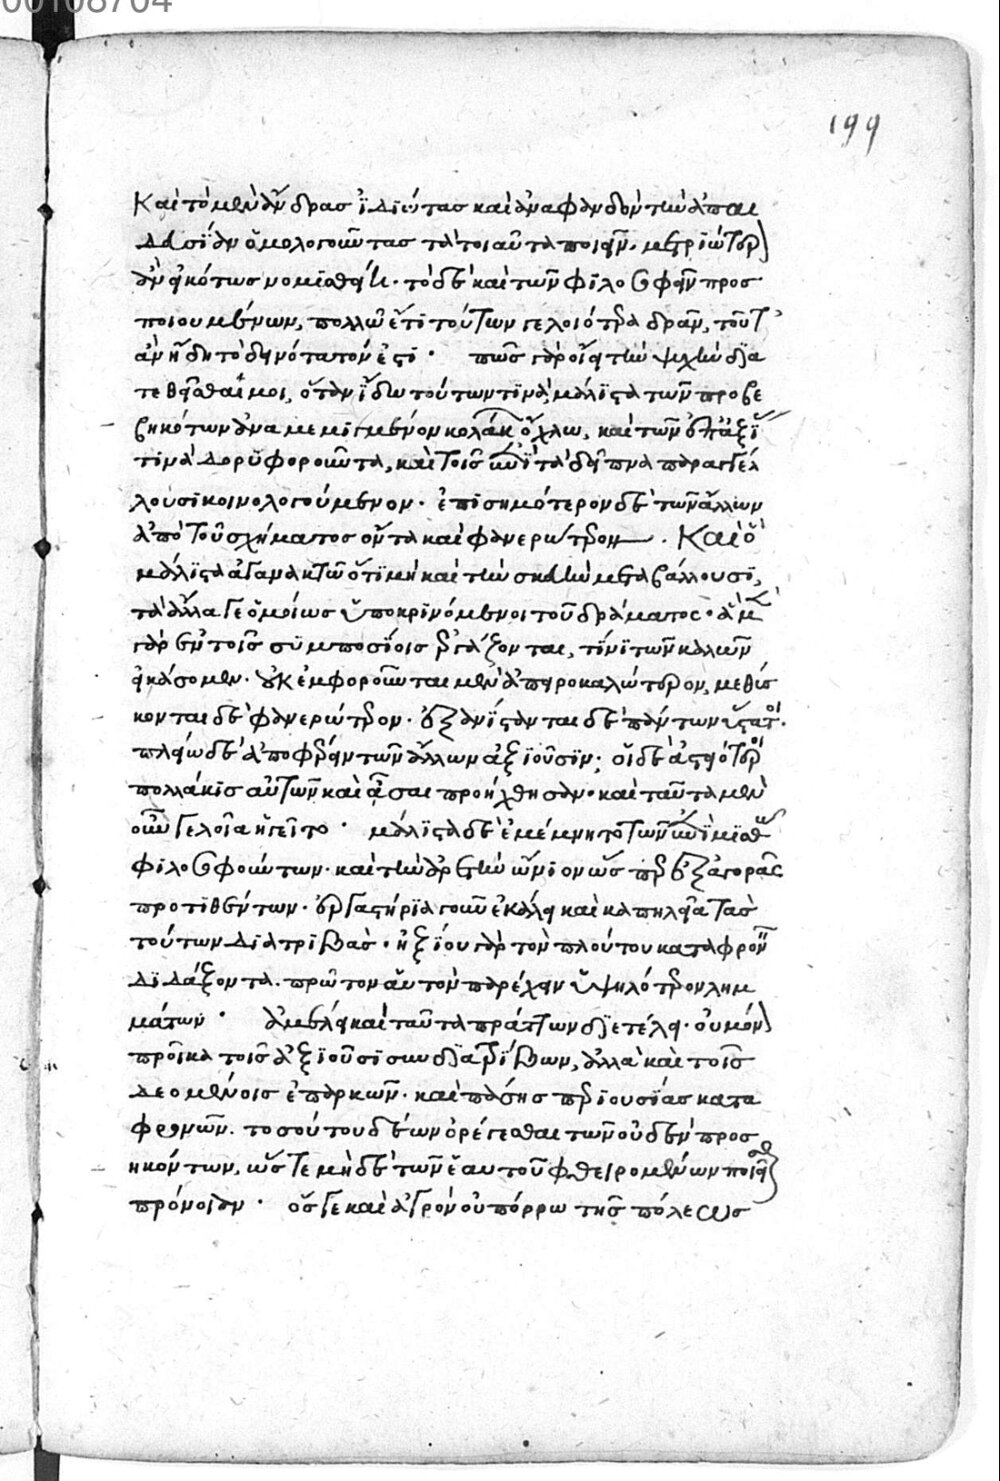 00108704
199
Καὶ τὸ μὲν ἄνδρας ἰδιώτας καὶ ἀναφανδὸν τὴν ἀπαι
δευσίαν ὁμολογοῦντας τὰ τοιαῦτα ποιεῖν, μετριώτερ
ἂν εἰκότως νομισθείη. τὸ δὲ καὶ τῶν φιλοσοφεῖν προσ
ποιουμένων, πολλῷ ἔτι τούτων γελοιότερα δρᾶν, τοῦτ'
ἂν ἤδη τὸ δεινότατον ἐστί. πῶς γὰρ οἴει τὴν ψυχὴν δια
τεθεῖσθαί μοι, ὅταν ἴδω τούτων τινὰ μάλιστα τῶν προβε
βηκότων ἀναμεμιγμένον κολάκων ὄχλω, καὶ τῶν ἐπ' ἀξί
τινὰ δορυφοροῦντα, καὶ τοῖς ἐπὶ τὰ δεῖπνα παραγγέλ
λουσι κοινολογούμενον. ἐπισημότερον δὲ τῶν ἄλλων
ἀπὸ τοῦ σχήματος ὄντα καὶ φανερώτερον. Καὶ ὃ
μάλιστα ἀγανακτῶ ὅτι μὴ καὶ τὴν σκευὴν μεταβάλλουσι,
τὰ ἄλλα γε ὁμοίως ὑποκρινόμενοι τοῦ δράματος. ἃ μ
γὰρ ἐν τοῖς συμποσίοις ἐργάζονται, τίνι τῶν καλῶν
εἰκάσομεν. οὐκ ἐμφοροῦνται μὲν ἀπειροκαλώτερον, μεθύσ
κονται δὲ φανερώτερον. ἐξανίστανται δὲ πάντων ὕστατοι.
πλείω δὲ ἀποφέρειν τῶν ἄλλων ἀξιοῦσιν; οἱ δὲ ἀστειότεροι
πολλάκις αὐτῶν καὶ ᾆσαι προήχθησαν. καὶ ταῦτα μὲν
οὖν γελοῖα ἡγεῖτο. μάλιστα δὲ ἐμέμνητο τῶν ἐπὶ μισθῷ
φιλοσοφούντων. καὶ τὴν ἀρετὴν ὤνιον ὥσπερ ἐξ ἀγορᾶς
προτιθέντων. ἐργαστήρια γοῦν ἐκάλει καὶ καπηλεῖα τὰς
τούτων διατριβάς. ἠξίου γὰρ τὸν πλούτου καταφρονεῖν
διδάξοντα. πρῶτον αὑτὸν παρέχειν ὑψηλότερον λημ
μάτων. ἀμέλει καὶ ταῦτα πράττων διετέλει. οὐ μόνον
προῖκα τοῖς ἀξιοῦσι συνδιατρίβων, ἀλλὰ καὶ τοῖς
δεομένοις ἐπαρκῶν. καὶ πάσης περιουσίας κατα
φρονῶν. τοσούτου δέων ὀρέγεσθαι τῶν οὐδὲν προσ
ηκόντων, ὥστε μηδὲ τῶν ἑαυτοῦ φθειρομένων ποιεῖσθαι
πρόνοιαν. ὅς γε καὶ ἀγρὸν οὐ πόρρω τῆς πόλεως